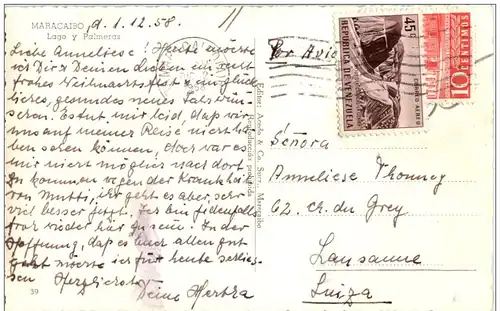 MARACAIBO, d. 1.12.58.
Lago y Palmeras
Liebe Anneliese! Heute möchte
ich Dir & Deinen Lieben ein recht
frohes Weihnachtsfest & ein glück-
liches, gesundes neues Jahr wün-
schen. Es tut mir leid, dass wir
uns auf meiner Reise nicht ha-
ben sehen können, aber war es
mir nicht möglich nach dort
zu kommen wegen der Krankheit
von Mutti, ihr geht es aber sehr
viel besser jetzt. Ich bin jedenfalls
froh wieder hier zu sein. In der
Hoffnung, dass es Euch allen gut
geht möchte ich für heute schlies-
sen Herzlichst
Deine Hertha
39
Editor: Aredo & Co. Sucrs. Maracaibo
Reproducción prohibida
Por Avión
45
REPUBLICA DE VENEZUELA
CORREO AEREO
10 CENTIMOS
Señora
Anneliese Thonney
62. ch. du Grey
Lausanne
Suiza